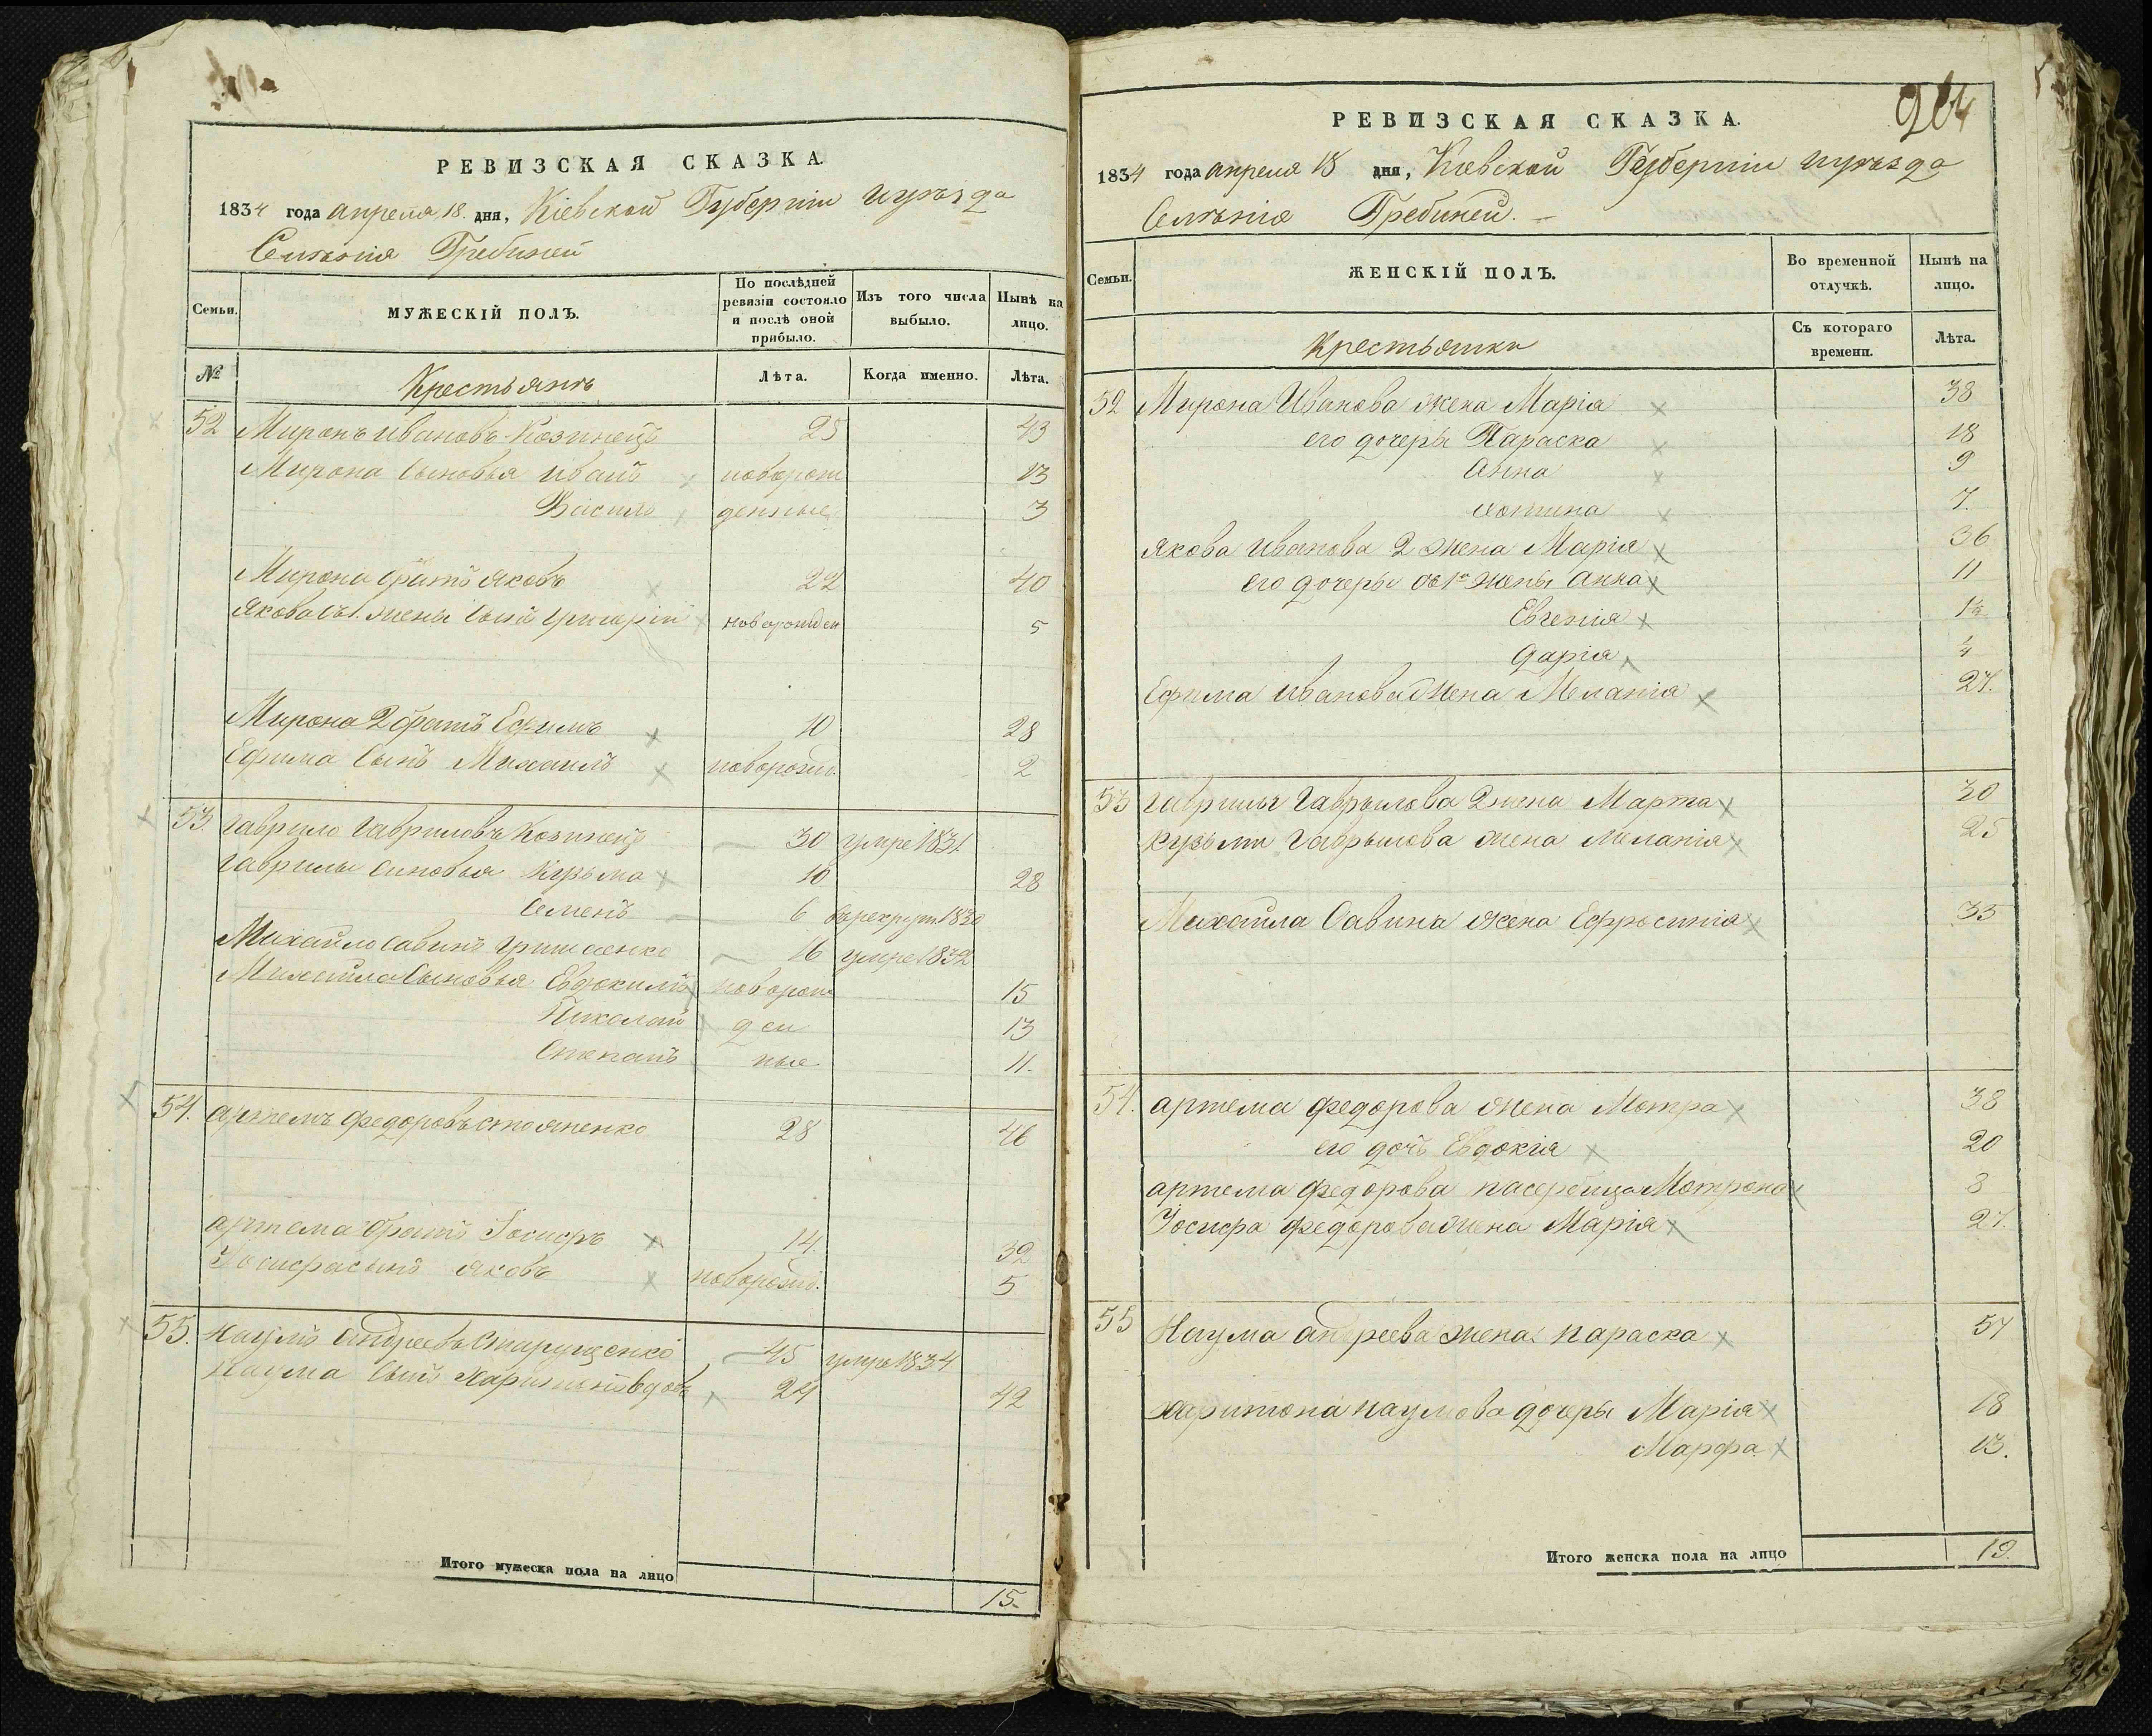 РЕВИЗСКАЯ СКАЗКА.
1834 года апреля 18 дня, Кіевской Губерніи и уѣзда
Селѣнія Гребиней
Семьи.
МУЖЕСКІЙ ПОЛЪ.
По послѣдней ревизіи состояло и послѣ оной прибыло.
Изъ того числа выбыло.
Нынѣ на лицо.
№
Крестьянъ
Лѣта.
Когда именно.
Лѣта.
52 Миронъ Ивановъ Козинецъ 25 43
Мирона Сыновья Иванъ новорож 13
Василь денные 3
Мирона братъ Яковъ 22 40
Якова съ 1. жены сынъ Григорій новорожден 5
Мирона 2 братъ Ефимъ 10 28
Ефима Сынъ Михаилъ новорожд. 2
53. Гаврило Гавриловъ Козинецъ 30 умре 1831
Гаврилы синовья Кузьма 10 28
Семенъ 6 въ рекрут 1830
Михайло Савинъ 16 умре 1832
Михайла Сыновья Евдокимъ новорож 15
Николай ден 13
Степанъ ные 11.
54. Артемъ Федоровъ Стояненко 28 46
Артема братъ Іосифъ 14. 32
Іосифа сынъ Яковъ новорожд. 5
55. Наумъ Андреевъ Старущенко 45 умре 1834
Наума Сынъ Харитонъ вдовъ 24 42
Итого мужеска пола на лицо 15.
264
РЕВИЗСКАЯ СКАЗКА.
1834 года апреля 18 дня, Кіевской Губерніи и уѣзда
Селѣнія Гребиней.
Семьи.
ЖЕНСКІЙ ПОЛЪ.
Во временной отлучкѣ.
Нынѣ на лицо.
Крестьянки
Съ котораго времени.
Лѣта.
52 Мирона Иванова жена Марія 38
его дочеры Параска 18
Анна 9
7.
Якова Иванова 2 жена Марія 36
его дочеры отъ 1й жены Анна 11
Евгенія 1½
Дарія ¼
Ефима Иванова жена Меланія 27.
53 Гаврилы Гаврылова 2 жена Марта 30
Кузьми Гаврылова жена Меланія 25
Михайла Савина жена Ефросинія 35
54. Артема Федорова жена Мотра 38
его дочь Евдокія 20
Артема Федорова пасербица Мотрона 8
Іосифа Федорова жена Марія 27.
55 Наума Андреева жена Параска 57
Харитона Наумова дочеры Марія 18
Марфа 13.
Итого женска пола на лицо 19.